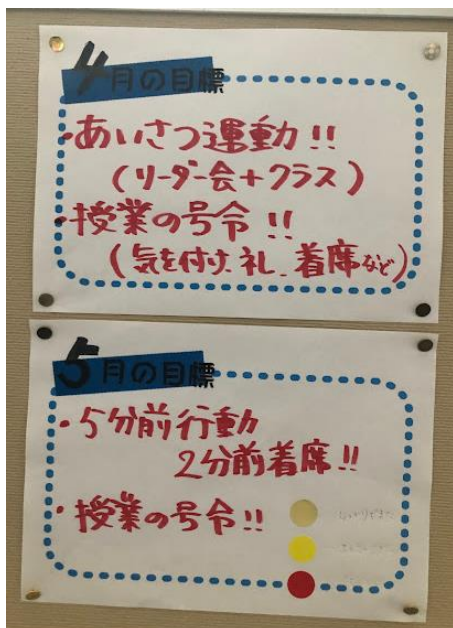 4月の目標
・あいさつ運動!!
(リーダー会+クラス)
・授業の号令!!
(気を付け、礼、着席など)
5月の目標
・5分前行動
2分前着席!!
・授業の号令!!